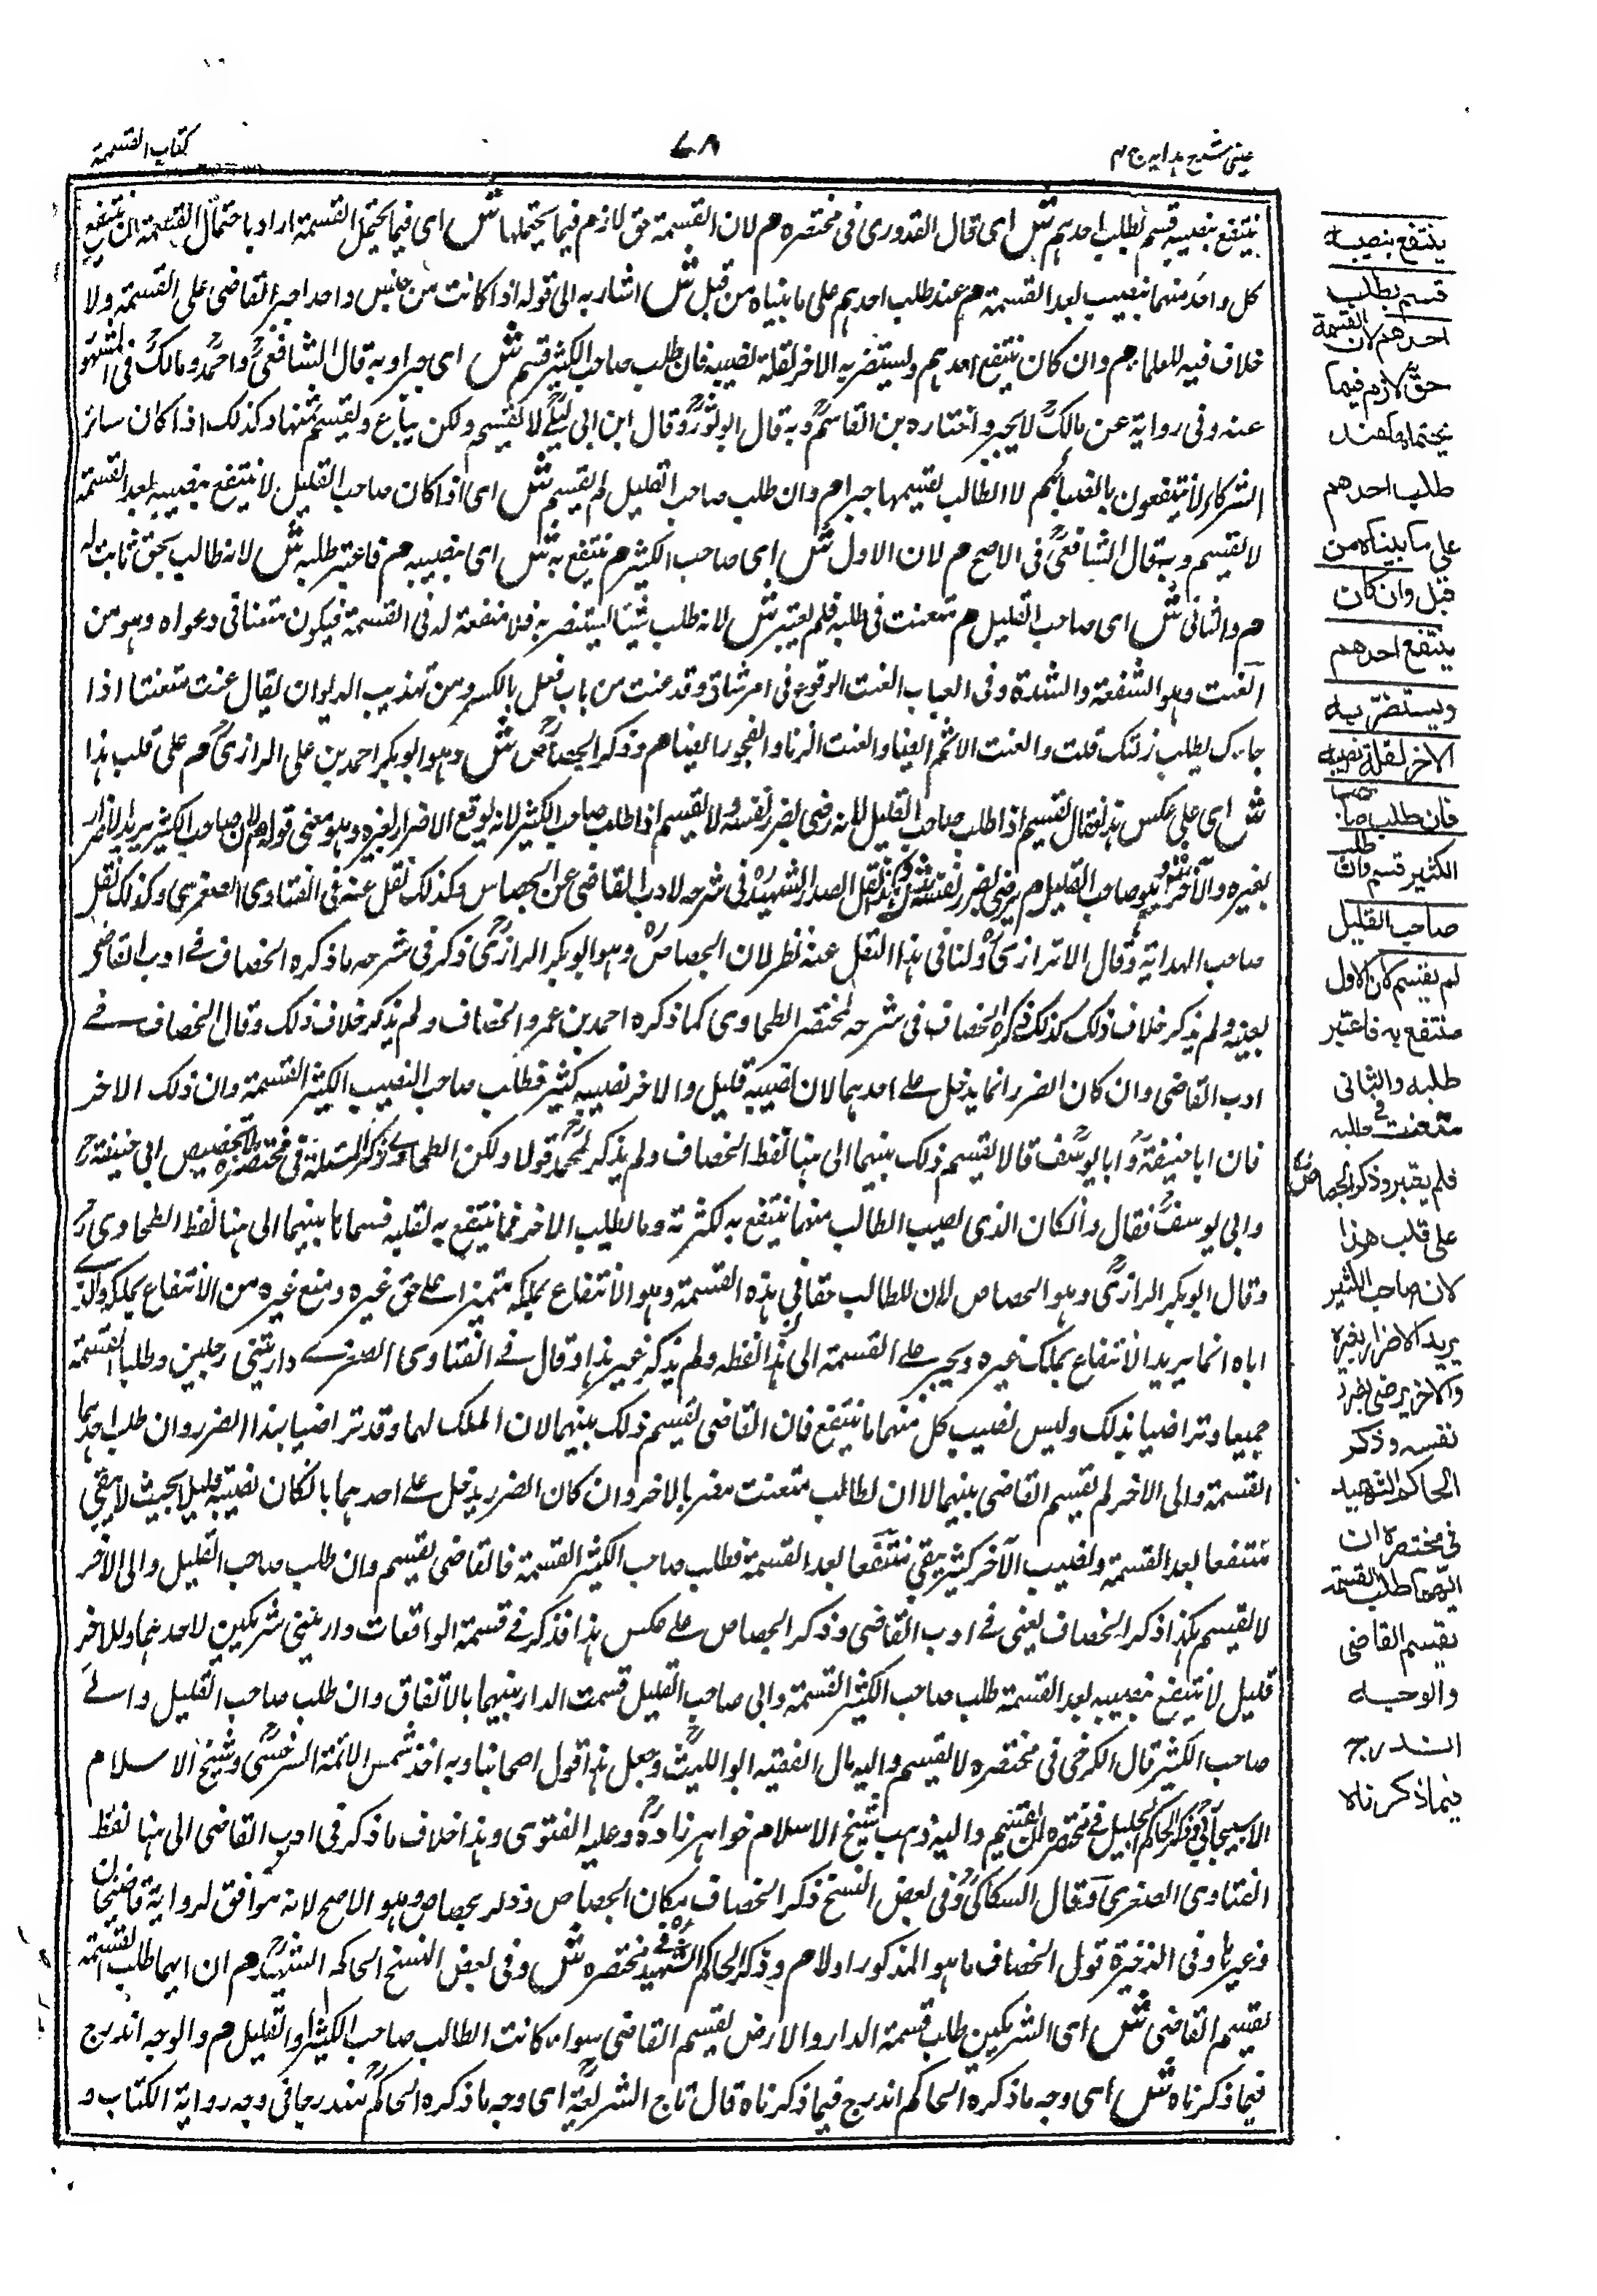 عینی شرح ہدایہ ج ۳
۷۸
کتاب القسمة
ینتفع بنصیبه قسم بطلب احدہم ش ای قال القدوری فی مختصرہ م لان القسمة حق لازم فیما یحتملها ش ای فیما یحتمل القسمة اراد باحتمال القسمة ان ینتفع
کل واحد منهما بنصیب بعد القسمة م عند طلب احدہم علی ما بیناہ من قبل ش اشار بہ الی قولہ اذا کانت من جنس واحد اجبر القاضی علی القسمة ولا
خلاف فیه للعلماء م وان کان ینتفع احدہم ویستضر بہ الاخر لقلة نصیبه فان طلب صاحب الکثیر قسم ش ای جبرا وبہ قال الشافعیؒ واحمدؒ ومالکؒ فی المشہور
عنه وفی روایة عن مالکؒ لا یجبر واختارہ بن القاسمؒ وبہ قال ابو ثورؒ وقال ابن ابی لیلیؒ لا تقسیم ولکن یباع ویقسم ثمنها وکذلک اذا کان سائر
الشرکاء لا ینتفعون بانصبائهم لا الطالب تقسیمها جبرا م وان طلب صاحب القلیل لم یقسم ش ای اذا کان صاحب القلیل لا ینتفع بنصیبه بعد القسمة
لا یقسم وبہ قال الشافعیؒ فی الاصح م لان الاول ش ای صاحب الکثیر م ینتفع بہ ش ای بنصیبه م فاعتبر طلبه ش لانہ طالب بحق ثابت لہ
م والثانی ش ای صاحب القلیل م متعنت فی طلبه فلم یعتبر ش لانہ طلب شیئا لیستضر بہ فلا منفعة لہ فی القسمة فیکون متعنتا فی دعواہ وہو من
العنت وہو الشفقة والشدة وفی العباب العنت الوقوع فی امر شاق وقد عنت من باب فعل بالکسر ومن تهذیب الدیوان یقال عنت متعنتا اذا
جاءک یطلب زلتک قلت والعنت الاثم ایضا والعنت الزنا والفجور ایضا م وذکر الجصاصؒ ش وہو ابو بکر احمد بن علی الرازیؒ م علی قلب ہذا
ش ای علی عکس ہذا فقال یقسم اذا طلب صاحب القلیل لانہ رضی بضرر نفسه ولا یقسم اذا طلب صاحب الکثیر لانہ یوقع الاضرار لغیرہ وہو معنی قولہ م لان صاحب الکثیر یرید الاضرار
بغیرہ والآخر ش وہو صاحب القلیل م یرضی بضرر نفسه ش ہکذا نقل الصدر الشہیدؒ فی شرحه لادب القاضی عن الجصاص وکذلک نقل عنه فی الفتاوی الصغری وکذلک نقل
صاحب الهدایة وقال الاترازیؒ ولنا فی ہذا النقل عنه نظر لان الجصاصؒ وہو ابو بکر الرازیؒ ذکر فی شرحه ما ذکرہ الخصاف فی ادب القاضی
بعینه ولم یذکر خلاف ذلک وکذلک ذکرہ الخصاف فی شرحه لمختصر الطحاوی کما ذکرہ احمد بن عمرو الخصاف ولم یذکر خلاف ذلک وقال الخصاف فی
ادب القاضی وان کان الضرر انما یدخل علی احدہما لان نصیبه قلیل والاخر نصیبه کثیر فطلب صاحب النصیب الکثیر القسمة وان ذلک الاخر
فان ابا حنیفةؒ وابا یوسفؒ قالا یقسم ذلک بینهما الی ہنا لفظ الخصاف ولم یذکر لمحمدؒ قولا ولکن الطحاوی ذکر المسئلة فی مختصرہ بتخصیص ابی حنیفةؒ
وابی یوسفؒ فقال وان کان الذی نصیب الطالب منها ینتفع بہ لکثرتہ وما لطلب الاخر فما ینتفع بہ لقلته قسماہا بینهما الی ہنا لفظ الطحاویؒ
وقال ابو بکر الرازیؒ وہو الجصاص لان للطالب حقا فی ہذہ القسمة وہو الانتفاع بملکه متمیزا علی حق غیرہ ومنع غیرہ من الانتفاع بملکه والذی
اباہ انما یرید الانتفاع بملک غیرہ ویجبر علی القسمة الی ہذا لفظه ولم یذکر غیر ہذا وقال فی الفتاوی الصغری دار بین رجلین وطلبا القسمة
جمیعا وتراضیا بذلک ولیس نصیب کل منهما ما ینتفع فان القاضی یقسم ذلک بینهما لان الملک لهما وقد تراضیا بهذا الضرر وان طلب احدہما
القسمة وابی الاخر لم یقسم القاضی بینهما لان الطالب متعنت مضر بالاخر وان کان الضرر یدخل علی احدہما بان کان نصیبه قلیلا بحیث لا یبقی
منتفعا بعد القسمة ونصیب الآخر کثیر یبقی منتفعا بعد القسمة فطلب صاحب الکثیر القسمة فالقاضی یقسم وان طلب صاحب القلیل وابی الآخر
لا یقسم ہکذا ذکر الخصاف یعنی فی ادب القاضی وذکر الجصاص علی عکس ہذا فذکر فی قسمة الواقعات دار بین شریکین لاحدہما وللاخر
قلیل لا ینتفع بنصیبه بعد القسمة طلب صاحب الکثیر القسمة وابی صاحب القلیل قسمت الدار بینهما بالاتفاق وان طلب صاحب القلیل وابی
صاحب الکثیر قال الکرخی فی مختصرہ لا یقسم والیه مال الفقیه ابو اللیثؒ وجعل ہذا قول اصحابنا وبہ اخذ شمس الائمة السرخسیؒ وشیخ الاسلام
الاسبیجابیؒ وذکر الحاکم الجلیل فی مختصرہ یقسم والیه ذہب شیخ الاسلام خواہر زادہؒ وعلیه الفتوی وہذا خلاف ما ذکر فی ادب القاضی الی ہنا لفظ
الفتاوی الصغری وقال السکاکیؒ وفی بعض النسخ ذکر الخصاف مکان الجصاص وہو الاصح لانہ موافق لروایة قاضیخان
وغیرہا وفی الذخیرة قول الخصاف ما ہو المذکور اولا م وذکر الحاکم الشہیدؒ فی مختصرہ ش وفی بعض النسخ الحاکم الشہیدؒ م ان ایهما طلب القسمة
یقسم القاضی ش ای الشریکین طلب قسمة الدار والارض یقسم القاضی سواء کانت الطالب صاحب الکثیر او القلیل م والوجه اندرج
فیما ذکرناہ ش ای وجه ما ذکرہ الحاکم اندرج فیما ذکرناہ قال تاج الشریعةؒ ای وجه ما ذکرہ الحاکمؒ مندرجا فی وجه روایة الکتاب و
ینتفع بنصیبه
قسم بطلب
احدهم لان القسمة
حق لازم فیما
یحتملها عند
طلب احدهم
علی ما بیناه من
قبل وان کان
ینتفع احدهم
ویستضر به
الاخر لقلة نصیبه
فان طلب صاحب
الکثیر قسم وان طلب
صاحب القلیل
لم یقسم لان الاول
منتفع به فاعتبر
طلبه والثانی
متعنت فی طلبه
فلم یعتبر وذکر الجصاص
علی قلب هذا
لان صاحب الکثیر
یرید الاضرار بغیره
والاخر یرضی بضرر
نفسه وذکر
الحاکم الشهید
فی مختصره ان
ایهما طلب القسمة
یقسم القاضی
والوجه
اندرج
فیما ذکرناه